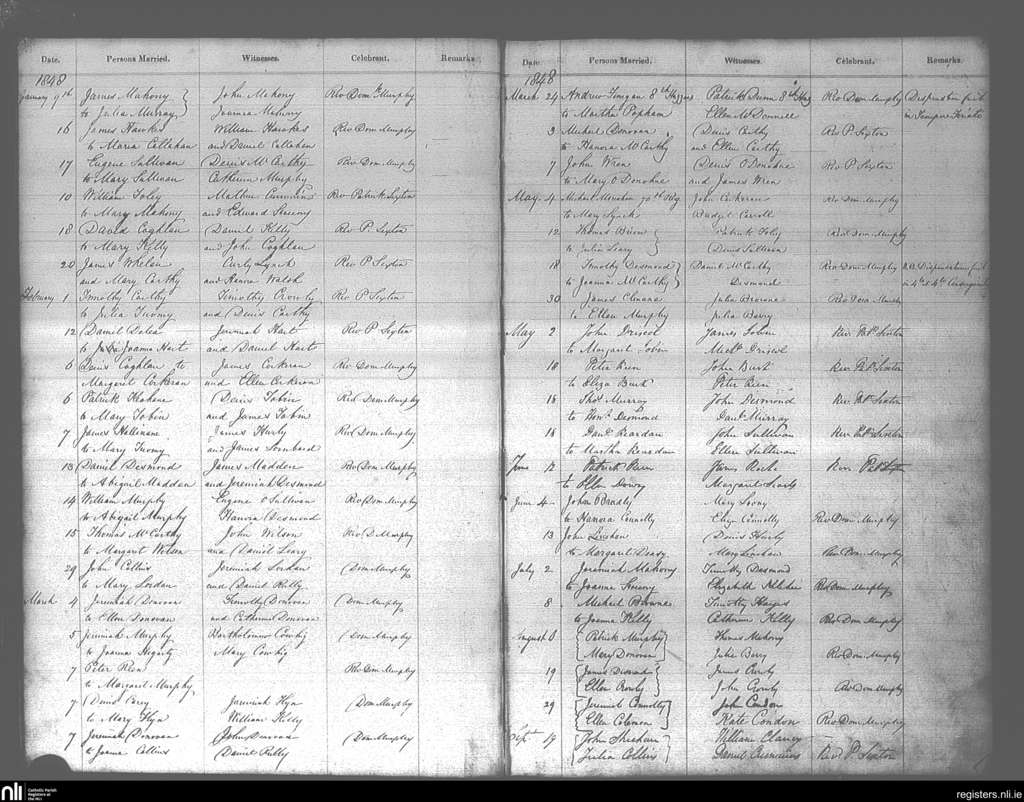 Date. Persons Married. Witnesses. Celebrant. Remarks
1848
January 9th James Mahony John Mahony Rev Dom Murphy
to Julia Murray Joanna Mahony
16 James Hawkes William Hawkes Rev Dom Murphy
to Maria Callahan and Daniel Callahan
17 Eugene Sullivan Denis McCarthy Rev Dom Murphy
to Mary Sullivan Catherine Murphy
10 William Foley Mathew Cummins Rev Patrick Sexton
to Mary Mahony and Edward
18 David Coghlan Daniel Kelly Rev P. Sexton
to Mary Kelly and John Coghlan
20 James Whelan Curly Lynch Rev P Sexton
and Mary Carthy and Honora Walsh
February 1 Timothy Carthy Timothy Crowly Rev P Sexton
to Julia Twomy and Denis Carthy
12 Daniel Dolea Jeremiah Hart Rev P Sexton
to Joanna Hart and Daniel Hart
6 Denis Coghlan to James Corkeran Rev Dom Murphy
Margaret Corkeran and Ellen Corkeran
6 Patrick Kahane Denis Tobin Rev Dom Murphy
to Mary Tobin and James Tobin
7 James Hallinan James Hurly Rev Dom Murphy
to Mary Twomy and James Lombard
13 Daniel Desmond James Madden Rev Dom Murphy
to Abigail Madden and Jeremiah Desmond
14 William Murphy Eugene O Sullivan Rev Dom Murphy
to Abigail Murphy Hanora Desmond
15 Thomas McCarthy John Wilson Rev D Murphy
to Margaret Wilson and Daniel Leary
29 John Collins Jeremiah Jordan Dom Murphy
to Mary Jordan and Daniel Reilly
March 4 Jeremiah Donovan Timothy Donovan Dom Murphy
to Ellen Donovan and Catherine Donovan
5 Jeremiah Murphy Bartholomew Cowhig Dom Murphy
to Joanna Hegarty Mary Cowhig
7 Peter Rea Rev Dom Murphy
to Margaret Murphy
7 Denis Carey Jeremiah Flyn Dom Murphy
to Mary Flyn William Kelly
7 Jeremiah Donovan John Donovan Dom Murphy
to Joanna Collins Daniel Reilly
Date. Persons Married. Witnesses. Celebrant. Remarks.
1848
March 24 Andrew Finegan 8th Patrick Dunn 8th Rev Dom Murphy Dispensation
to Martha Popham Ellen McDonnell in Tempore
3 Michael Donovan Denis Carthy Rev P. Sexton
to Hanora McCarthy and Ellen Carthy
7 John Wren Denis O Donohue Rev P. Sexton
to Mary O Donohue and James Wren
May 4 Michael 70th John Corkeran Rev Dom Murphy
to Mary Lynch Bridget Carroll
12 Thomas Patrick Foley Rev Dom Murphy
to Julia Leary Denis Sullivan
18 Timothy Desmond Daniel McCarthy Rev Dom Murphy N.B. Dispensation
to Joanna McCarthy Desmond in 4th & 4th
30 James Julia Rev Dom Murphy
to Ellen Murphy Julia Barry
May 2 John Driscol James Tobin Rev Pat Sexton
to Margaret Tobin Michl Driscol
18 Peter John Burk Rev Pat Sexton
to Eliza Burk Peter
18 Thos Murray John Desmond Rev Pat Sexton
to Honr Desmond Danl Murray
18 Danl Reardan John Sullivan Rev Pat Sexton
to Martha Reardan Ellen Sullivan
June 12 Patrick James Roche Revr Pat Sexton
to Ellen Margaret
June 4 John Mary
to Hanora Connolly Eliza Connolly Rev Dom Murphy
13 John Linehan Denis Hurly
to Margaret Deasy Mary Linehan Rev Dom Murphy
July 2 Jeremiah Mahony Timothy Desmond
to Joanna Elizabeth Rev Dom Murphy
8 Michael Browne Timothy Hayes
to Joanna Kelly Catherine Kelly Rev Dom Murphy
August 8 Patrick Murphy Thomas Mahony
Mary Donovan Julia Barry Rev Dom Murphy
19 James James Crowly
Ellen Crowly John Crowly Rev Dom Murphy
29 Jeremiah Connolly John Condon
Ellen Coleman Kate Condon Rev Dom Murphy
Sept 19 John Sheehan William Clancy
Julia Collins Daniel Cummins Revr P. Sexton
nli Catholic Parish Registers at the NLI registers.nli.ie